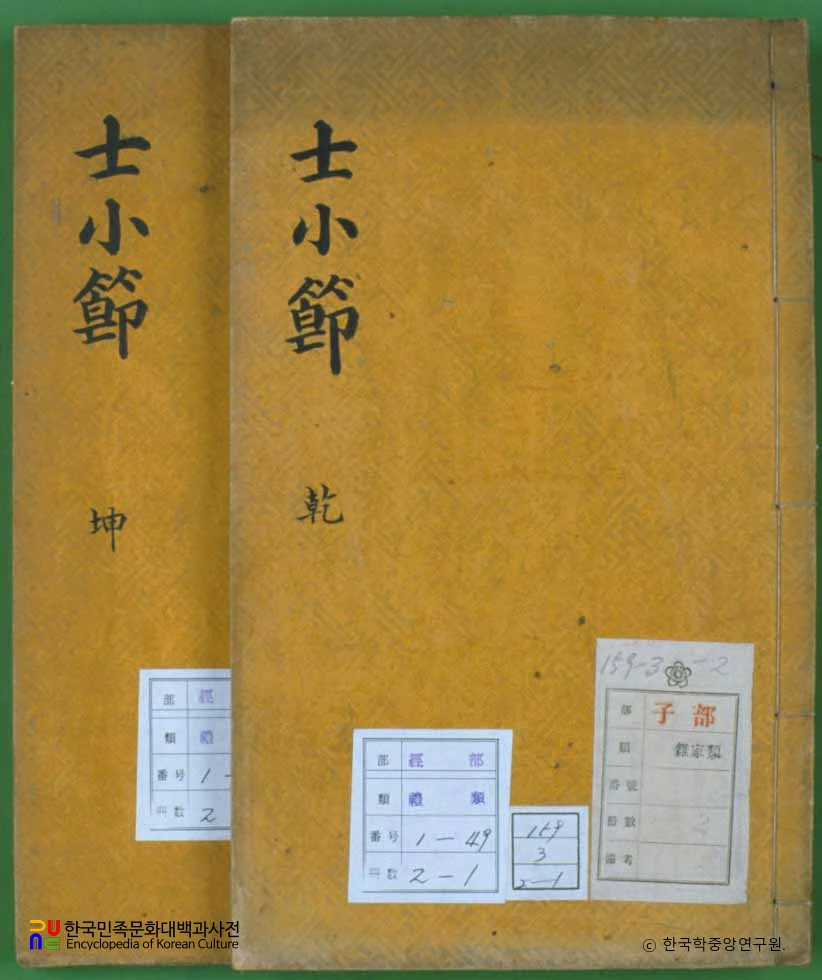 士小節
坤
士小節
乾
部 經
類 禮
番号 1-
冊数 2
部 經部
類 禮類
番号 1-49
冊数 2-1
159
3
2-1
159-3 -2
部 子部
類 儒家類
番號
冊數 2
備考
한국민족문화대백과사전
Encyclopedia of Korean Culture
© 한국학중앙연구원.